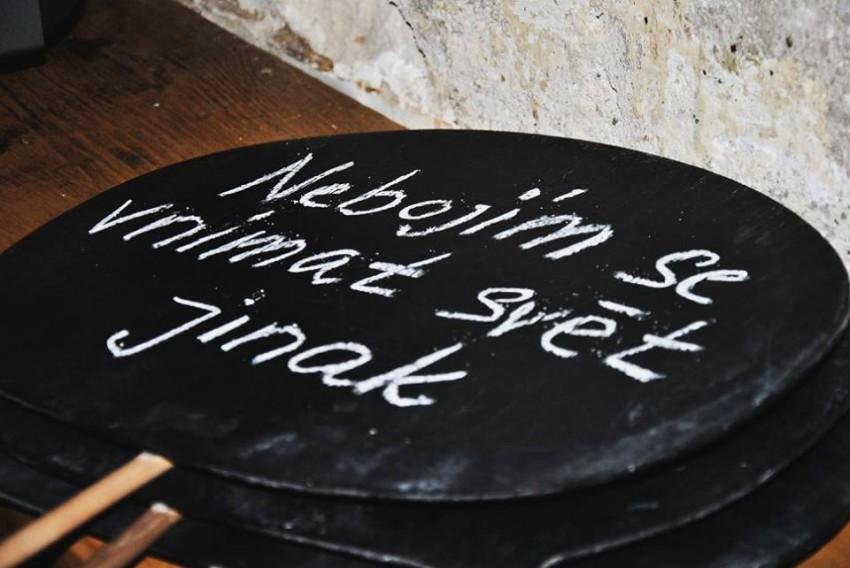 Nebojím se
vnímat svět
jinak